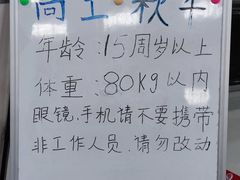 高空秋千
年龄：15周岁以上
体重：80kg以内
眼镜、手机请不要携带
非工作人员，请勿改动